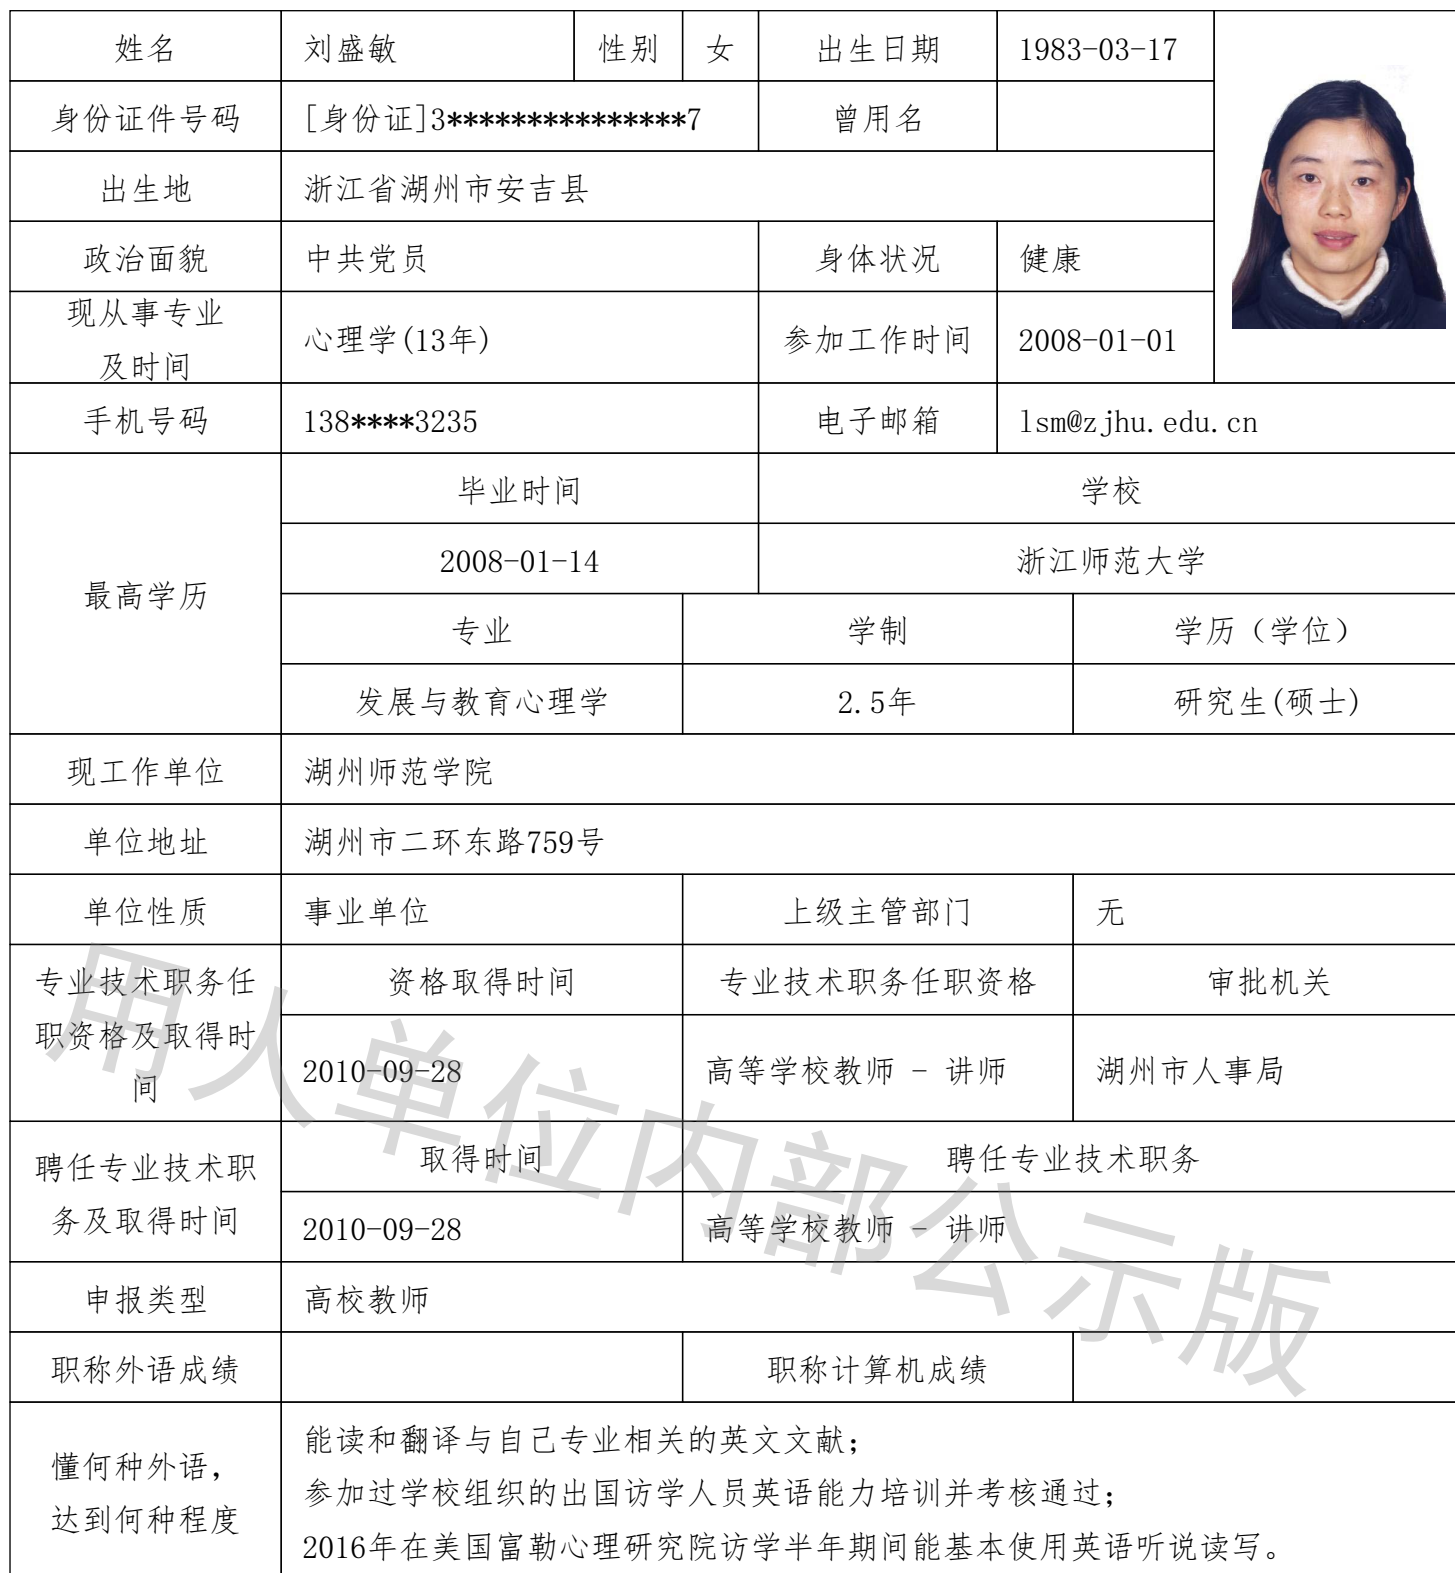 姓名 刘盛敏 性别 女 出生日期 1983-03-17
身份证件号码 [身份证]3***************7 曾用名
出生地 浙江省湖州市安吉县
政治面貌 中共党员 身体状况 健康
现从事专业
及时间 心理学(13年) 参加工作时间 2008-01-01
手机号码 138****3235 电子邮箱 lsm@zjhu.edu.cn
最高学历
毕业时间 学校
2008-01-14 浙江师范大学
专业 学制 学历（学位）
发展与教育心理学 2.5年 研究生(硕士)
现工作单位 湖州师范学院
单位地址 湖州市二环东路759号
单位性质 事业单位 上级主管部门 无
专业技术职务任
职资格及取得时
间
资格取得时间 专业技术职务任职资格 审批机关
2010-09-28 高等学校教师 - 讲师 湖州市人事局
聘任专业技术职
务及取得时间
取得时间 聘任专业技术职务
2010-09-28 高等学校教师 - 讲师
申报类型 高校教师
职称外语成绩 职称计算机成绩
懂何种外语，
达到何种程度
能读和翻译与自己专业相关的英文文献；
参加过学校组织的出国访学人员英语能力培训并考核通过；
2016年在美国富勒心理研究院访学半年期间能基本使用英语听说读写。
用人单位内部公示版